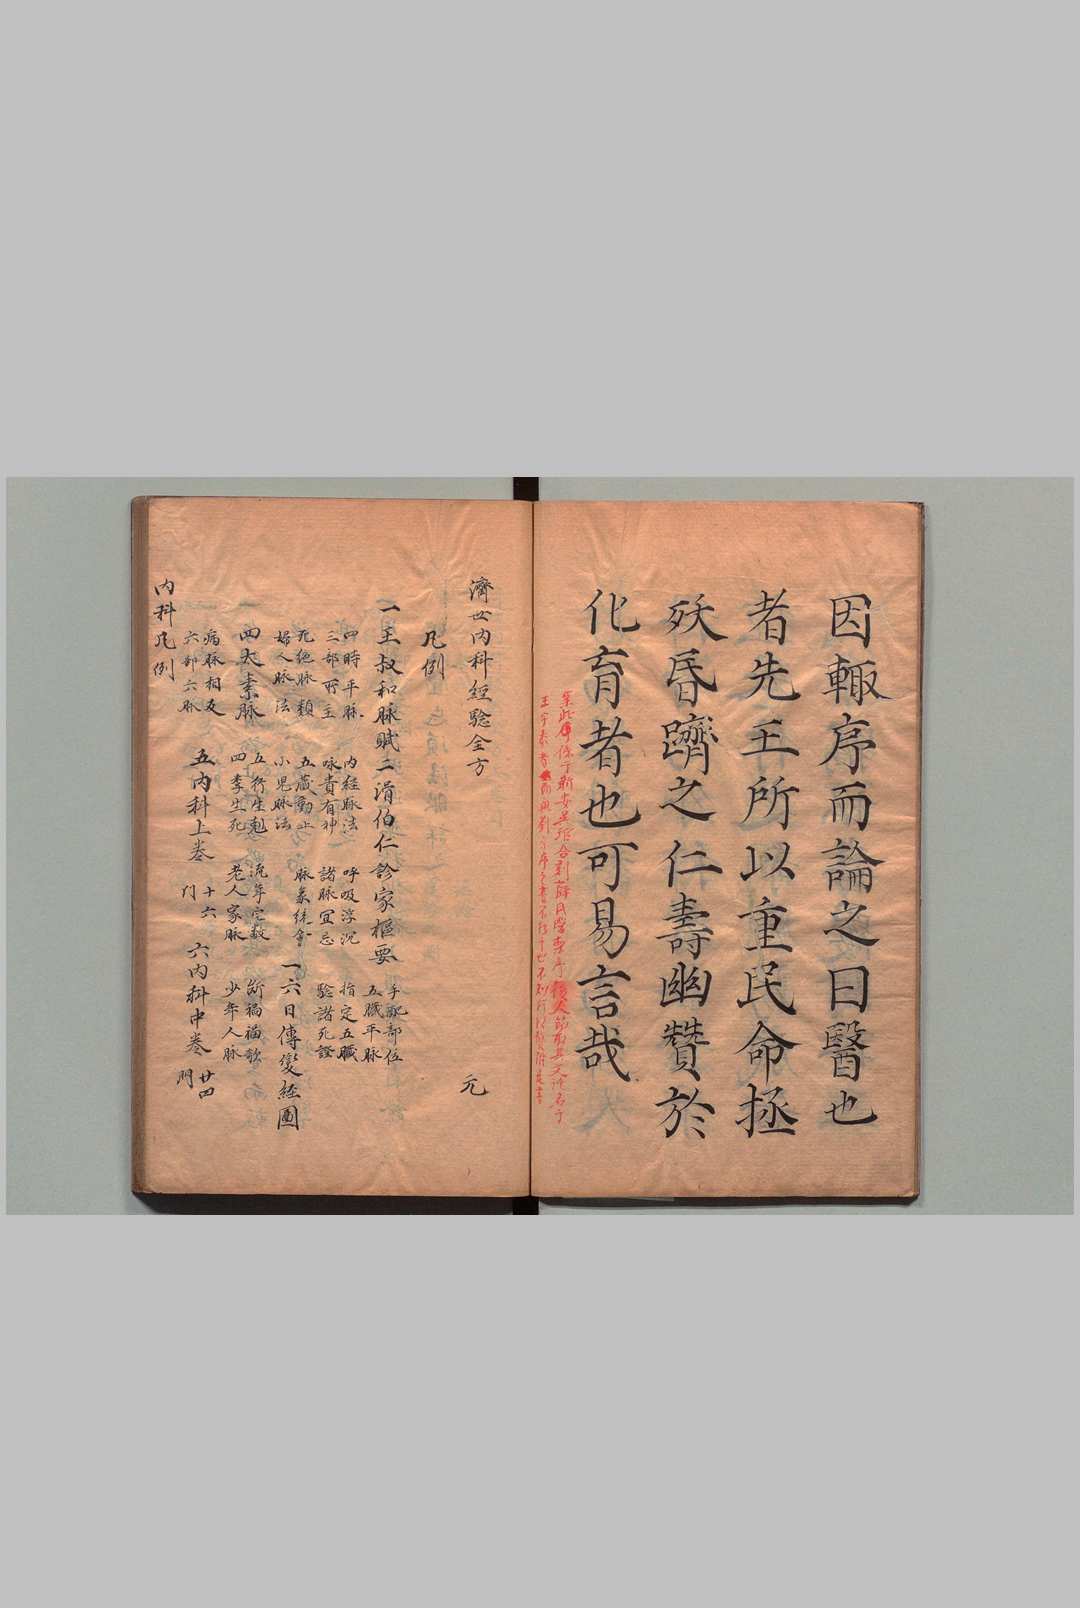 因輙序而論之曰醫也
者先王所以重民命拯
殀昬躋之仁壽幽贊於
化育者也可易言哉
濟世內科經驗全方 元
凡例
一王叔和脉賦 二滑伯仁診家樞要
手配部位 五臟平脉
四時平脉 內經脉法 呼吸浮沉 指定五臟
三部所主 咏貴有神 諸脉宜忌 驗諸死證
死絶脉類 五臟動止 脉象統會
婦人脉法 小兒脉法
六日傳變經圖
四太素脉 五行生剋 流年定數 斷禍福歌
四季生死 老人家脉 少年人脉
病脉相反
六部六脉
五內科上卷 十六門 六內科中卷 廿四門
內科凡例